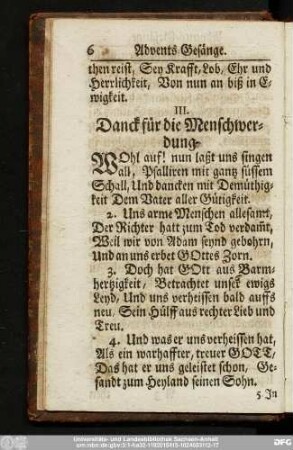 6 Advents Gesänge.
then reist, Sey Krafft, Lob, Ehr und
Herrlichkeit, Von nun an biß in E-
wigkeit.
III.
Danck für die Menschwer-
dung.
WOhl auf! nun laßt uns singen
all, Psalliren mit gantz süssem
Schall, Und dancken mit Demüthig-
keit Dem Vater aller Gütigkeit.
2. Uns arme Menschen allesamt,
Der Richter hatt zum Tod verdam̃t,
Weil wir von Adam seynd gebohrn,
Und an uns erbet GOttes Zorn.
3. Doch hat GOtt aus Barm-
hertzigkeit, Betrachtet unser ewigs
Leyd, Und uns verheissen bald auffs
neu, Sein Hülff aus rechter Lieb und
Treu.
4. Und was er uns verheissen hat,
Als ein warhaffter, treuer GOTT,
Das hat er uns geleistet schon, Ge-
sandt zum Heyland seinen Sohn.
5 In
Universitäts- und Landesbibliothek Sachsen-Anhalt
DFG